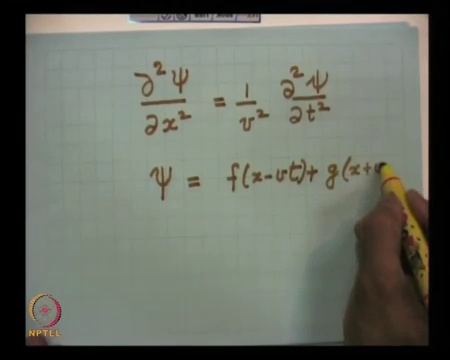 ∂²Ψ/∂x² = 1/v² ∂²Ψ/∂t²
Ψ = f(x-vt)+ g(x+
NPTEL